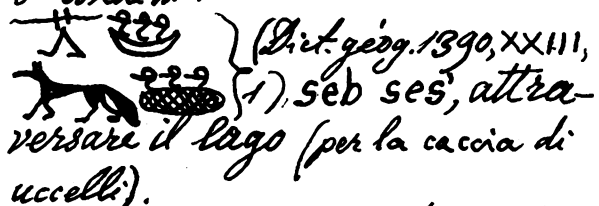 (Dict. géog. 1390, XXIII,
1), seb seš, attra-
versare il lago (per la caccia di
uccelli).